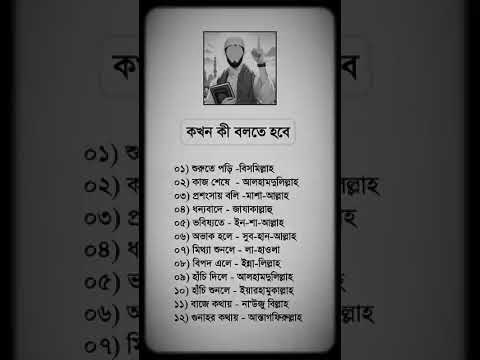 কখন কী বলতে হবে
০১) শুরুতে পড়ি -বিসমিল্লাহ
০২) কাজ শেষে - আলহামদুলিল্লাহ
০৩) প্রশংসায় বলি -মাশা-আল্লাহ
০৪) ধন্যবাদে - জাযাকাল্লাহু
০৫) ভবিষ্যতে - ইন-শা-আল্লাহ
০৬) অভাক হলে - সুব-হান-আল্লাহ
০৭) মিথ্যা শুনলে - লা-হাওলা
০৮) বিপদ এলে - ইন্না-লিল্লাহ
০৯) হাঁচি দিলে - আলহামদুলিল্লাহ
১০) হাঁচি শুনলে - ইয়ারহামুকাল্লাহ
১১) বাজে কথায় - না'উজু বিল্লাহ
১২) গুনাহর কথায় - আস্তাগফিরুল্লাহ